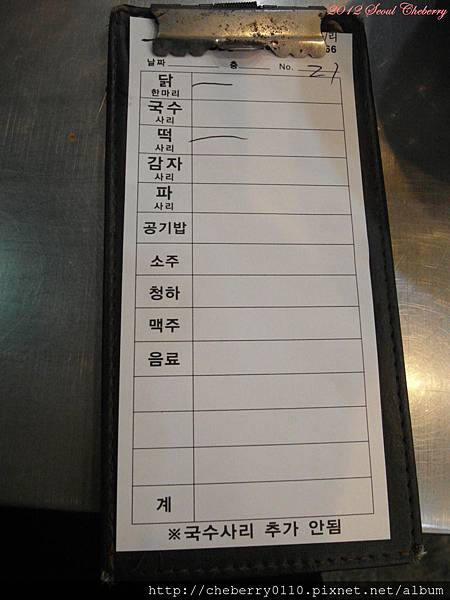 2012 Seoul Cheberry
리
66
날짜 층 No. 21
닭
한마리
국수
사리
떡
사리
감자
사리
파
사리
공기밥
소주
청하
맥주
음료
계
※국수사리 추가 안됨
http://cheberry0110.pixnet.net/album